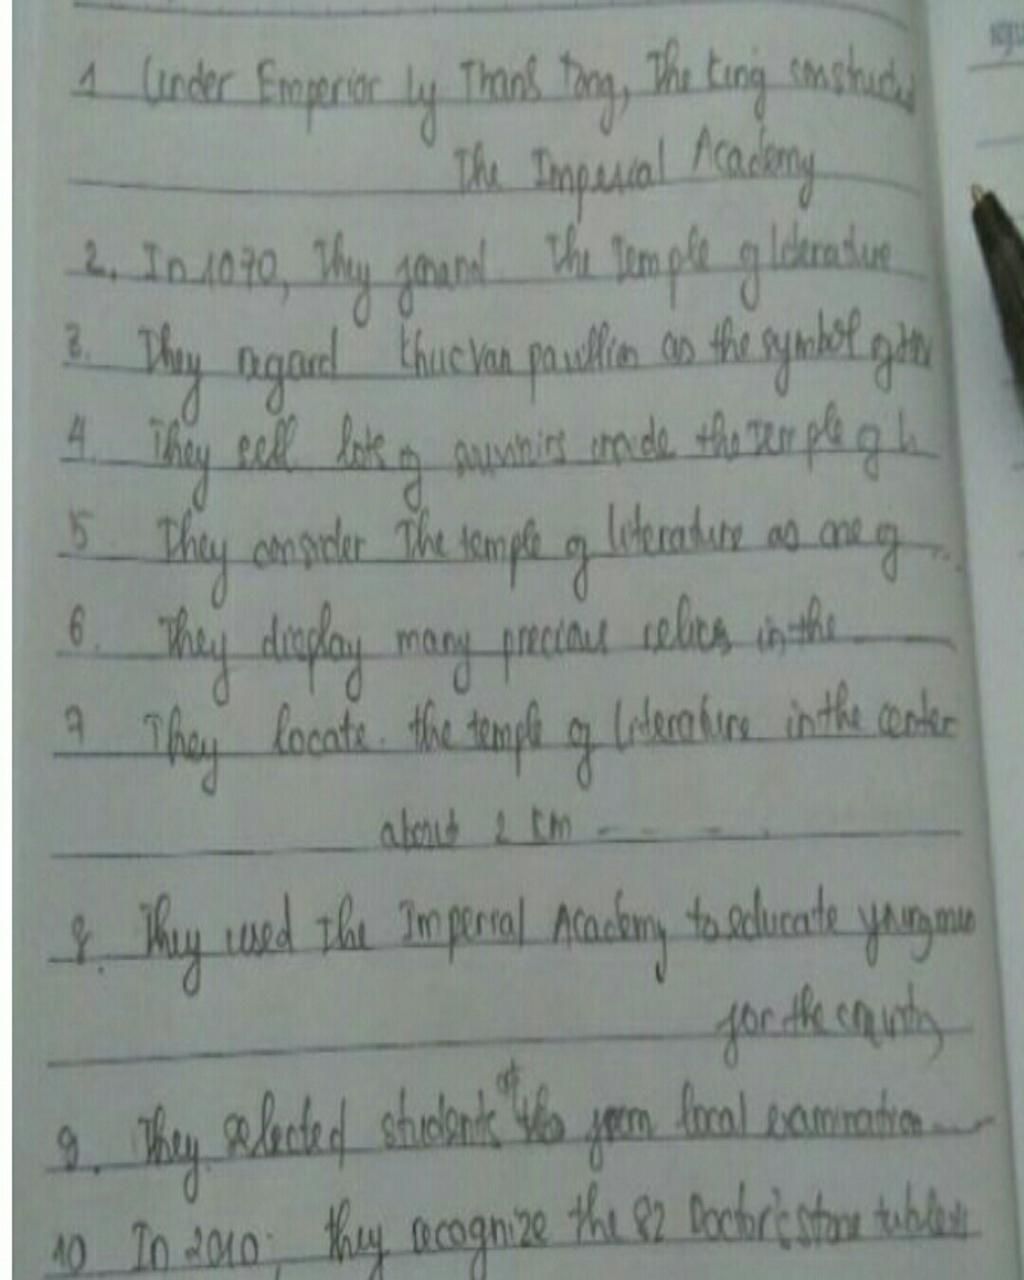 1 Under Emperior Ly Thanh Tong, The king constructed
The Imperial Academy
2. In 1070, They found The Temple of literature
3. They regard Khuc Van pavillion as the symbol of
4. They sell lots of the Temple of L
5. They consider The temple of literature as one of ...
6. They display many precious relics in the
7 They locate the temple of literature in the center
about 2 km - - - -
8. They used the Imperial Academy to educate young men
for the country
9. They selected students of from local examination
10 In 2010, they recognize the 82 Doctor's stone tablets